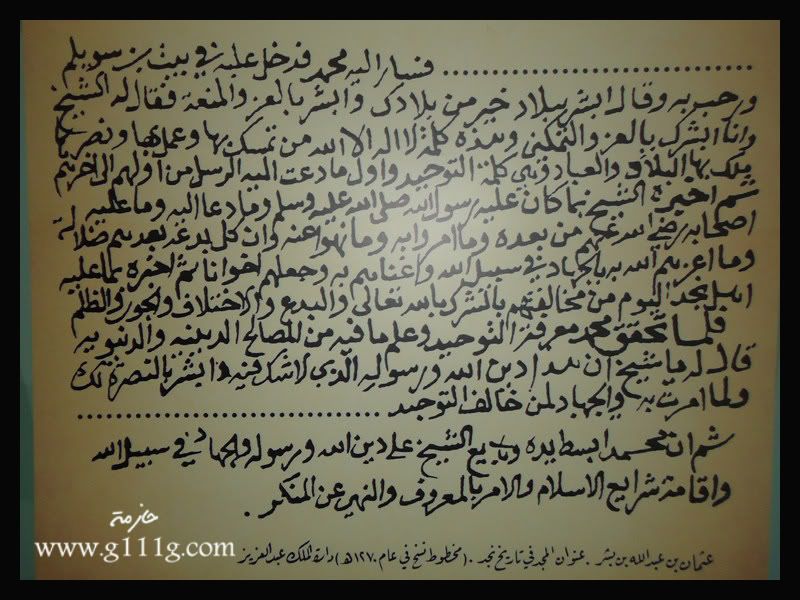 ............................ فسار اليه محمد فدخل عليه في بيت بن سويلم
ورحب به وقال ابشر ببلاد خير من بلادك وابشر بالعز والمنعة فقال له الشيخ
وانا ابشرك بالعز والتمكين وهذه كلمة لا اله الا الله من تمسك بها وعمل بها ونصرها
ملك بها البلاد والعباد وهي كلمة التوحيد واول ما دعت اليه الرسل من اولهم الى اخرهم
ثم اخبره الشيخ بما كان عليه رسول الله صلى الله عليه وسلم وما دعا اليه وما عليه
اصحابه رضي الله عنهم من بعده وما امروا به وما نهوا عنه وان كل بدعة بعدهم ضلالة
وما اعزهم الله به بالجهاد في سبيل الله واغناهم به وجعلهم اخوانا ثم اخبره بما عليه
اهل نجد اليوم من مخالفتهم بالشرك بالله تعالى والبدع والاختلاف والجور والظلم
فلما تحقق محمد معرفة التوحيد وعلم ما فيه من المصالح الدينيه والدنيويه
قال له يا شيخ ان هذا دين الله ورسوله الذي لا شك فيه وابشر بالنصرة لك
ولما امرت به والجهاد لمن خالف التوحيد ............................
ثم ان محمد ابسط يده وبايع الشيخ على دين الله ورسوله والجهاد في سبيل الله
واقامة شرايع الاسلام والامر بالمعروف والنهي عن المنكر .
عثمان بن عبدالله بن بشر . عنوان المجد في تاريخ نجد . (مخطوط نسخ في عام ١٢٧٠هـ) دارة الملك عبدالعزيز
حازمة
www.g111g.com